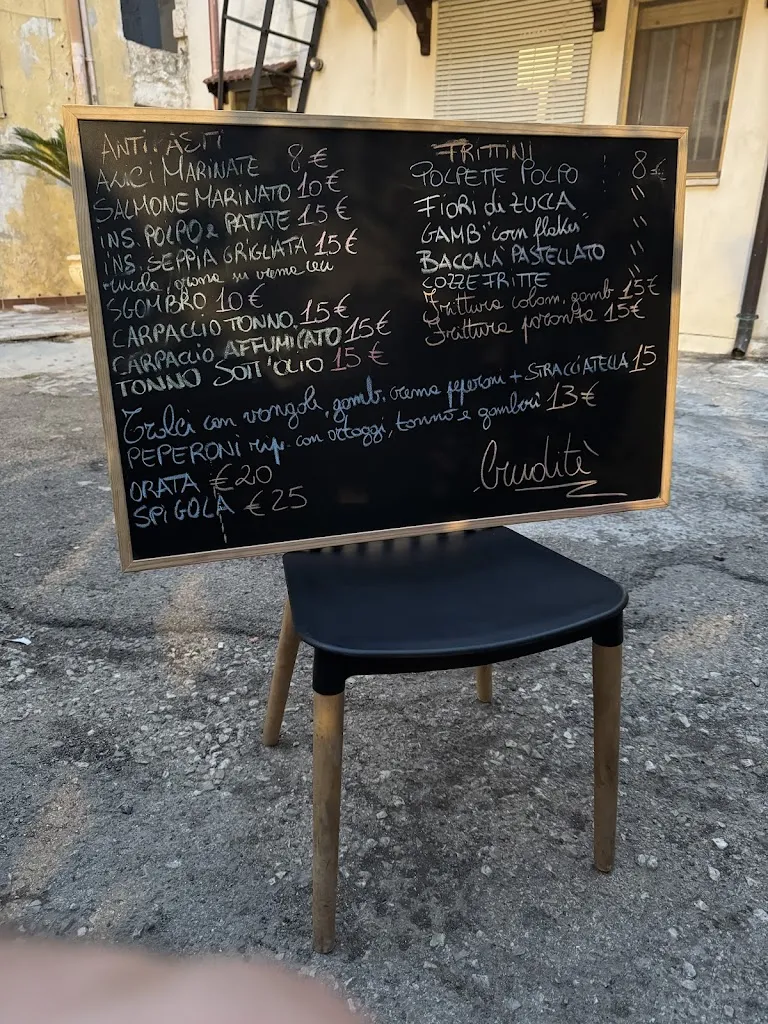 ANTIPASTI
ALICI MARINATE 8€
SALMONE MARINATO 10€
INS. POLPO e PATATE 15€
INS. SEPPIA GRIGLIATA 15€
rucola, grana su crema ceci
SGOMBRO 10€
CARPACCIO TONNO 15€
CARPACCIO AFFUMICATO 15€
TONNO SOTT'OLIO 15€
FRITTINI
POLPETTE POLPO 8€
FIORI di ZUCCA "
GAMB "corn flakes" "
BACCALÀ PASTELLATO "
COZZE FRITTE "
Frittura calam. gamb 15€
Frittura paranza 15€
con vongole, gamb. crema peperoni + STRACCIATELLA 15
PEPERONI rip. con ortaggi, tonno e gamberi 13€
ORATA €20
SPIGOLA €25
Crudité